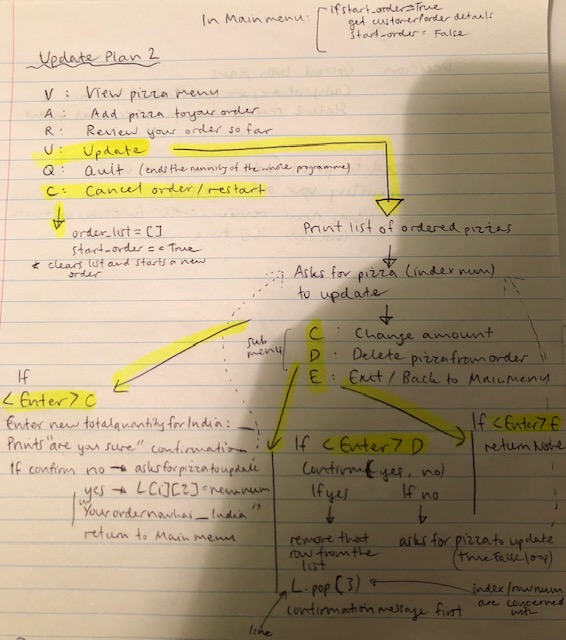 In Main menu: if start_order = True
get customer/order details
start-order = False
Update Plan 2
V : View pizza menu
A : Add pizza to your order
R : Review your order so far
U : Update
Q : Quit (ends the running of the whole programme)
C : Cancel order / restart
order_list = []
start_order = True
* clears list and starts a new
order
Print list of ordered pizzas
Asks for pizza (index num)
to update
sub
menu
C : Change amount
D : Delete pizza from order
E : Exit / Back to Main menu
If
<Enter> C
Enter new total quantity for India:
Prints "are you sure" confirmation
If confirm no → asks for pizza to update
yes → L[i][2] = new num
"Your order now has _ India"
return to Main menu
If <Enter> D
Confirm (yes, no)
If yes
If no
remove that
row from the
list
asks for pizza to update
(True False loop)
L.pop(3)
index/row num
are concerned
with
confirmation message first
line
If <Enter> E
return None